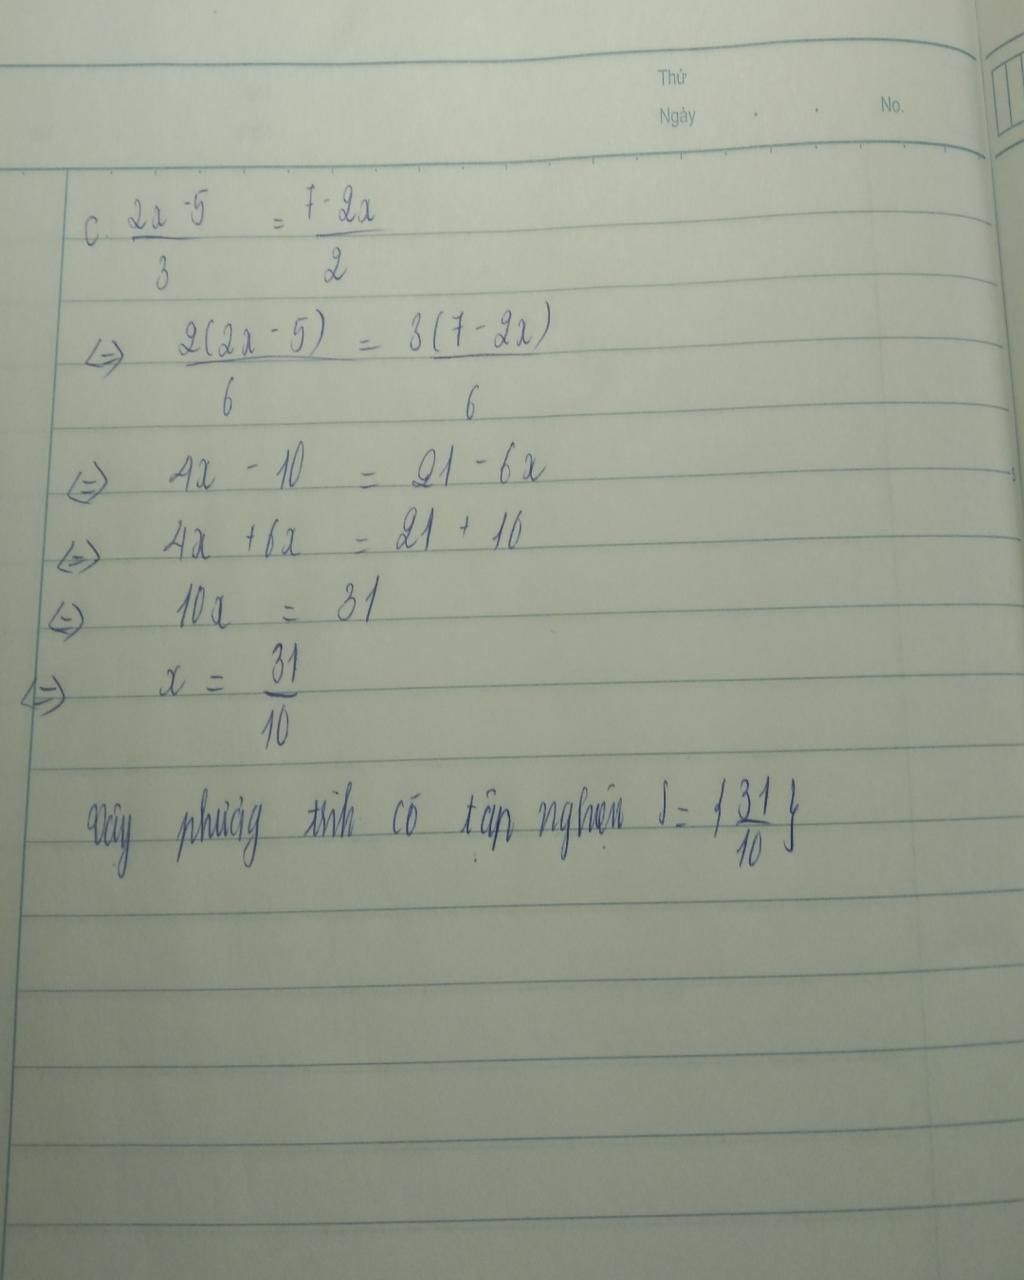 Thứ
Ngày . . No.
c. \frac{2x-5}{3} = \frac{7-2x}{2}
<=> \frac{2(2x-5)}{6} = \frac{3(7-2x)}{6}
<=> 4x - 10 = 21 - 6x
<=> 4x + 6x = 21 + 10
<=> 10x = 31
<=> x = \frac{31}{10}
Vậy phương trình có tập nghiệm S = {\frac{31}{10}}